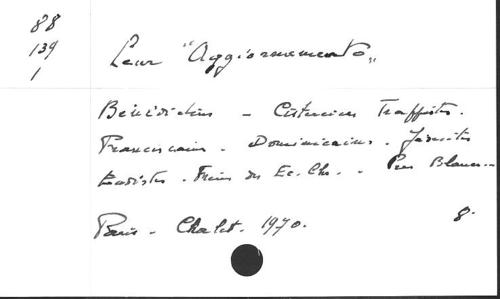 88
139
1
Leur "Aggiornamento"
Bénédictins - Cisterciens Trappistes.
Franciscains. Dominicains. Jésuites
Eudistes. Frères des Ec. Chr. - Pères Blancs -
Paris - Chalet. 1970. 8.